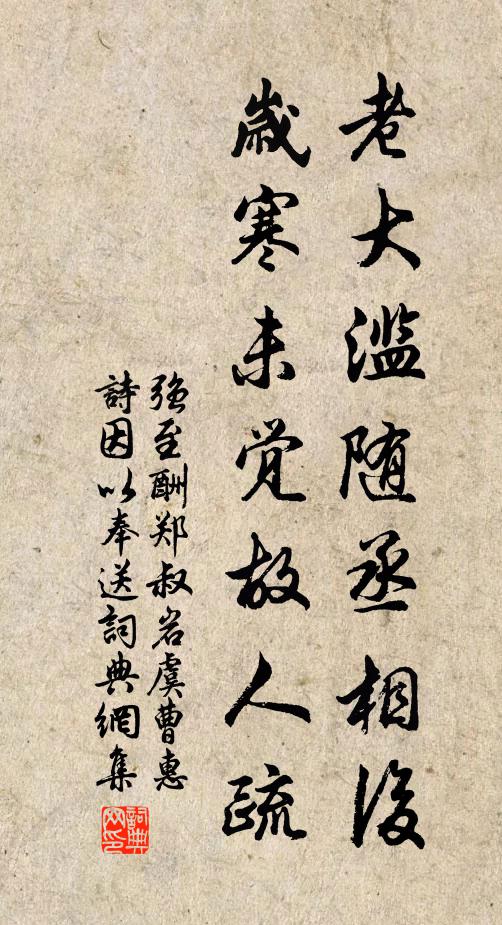 老大滥随丞相後
嵗寒未觉故人疏
强至酬郑叔岩虞曹惠
詩因以奉送詞典網集
詞典网印